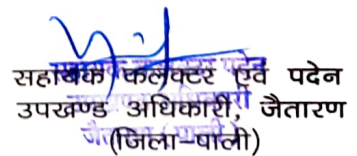 सहायक कलक्टर एवं पदेन
उपखण्ड अधिकारी, जैतारण
(जिला-पाली)